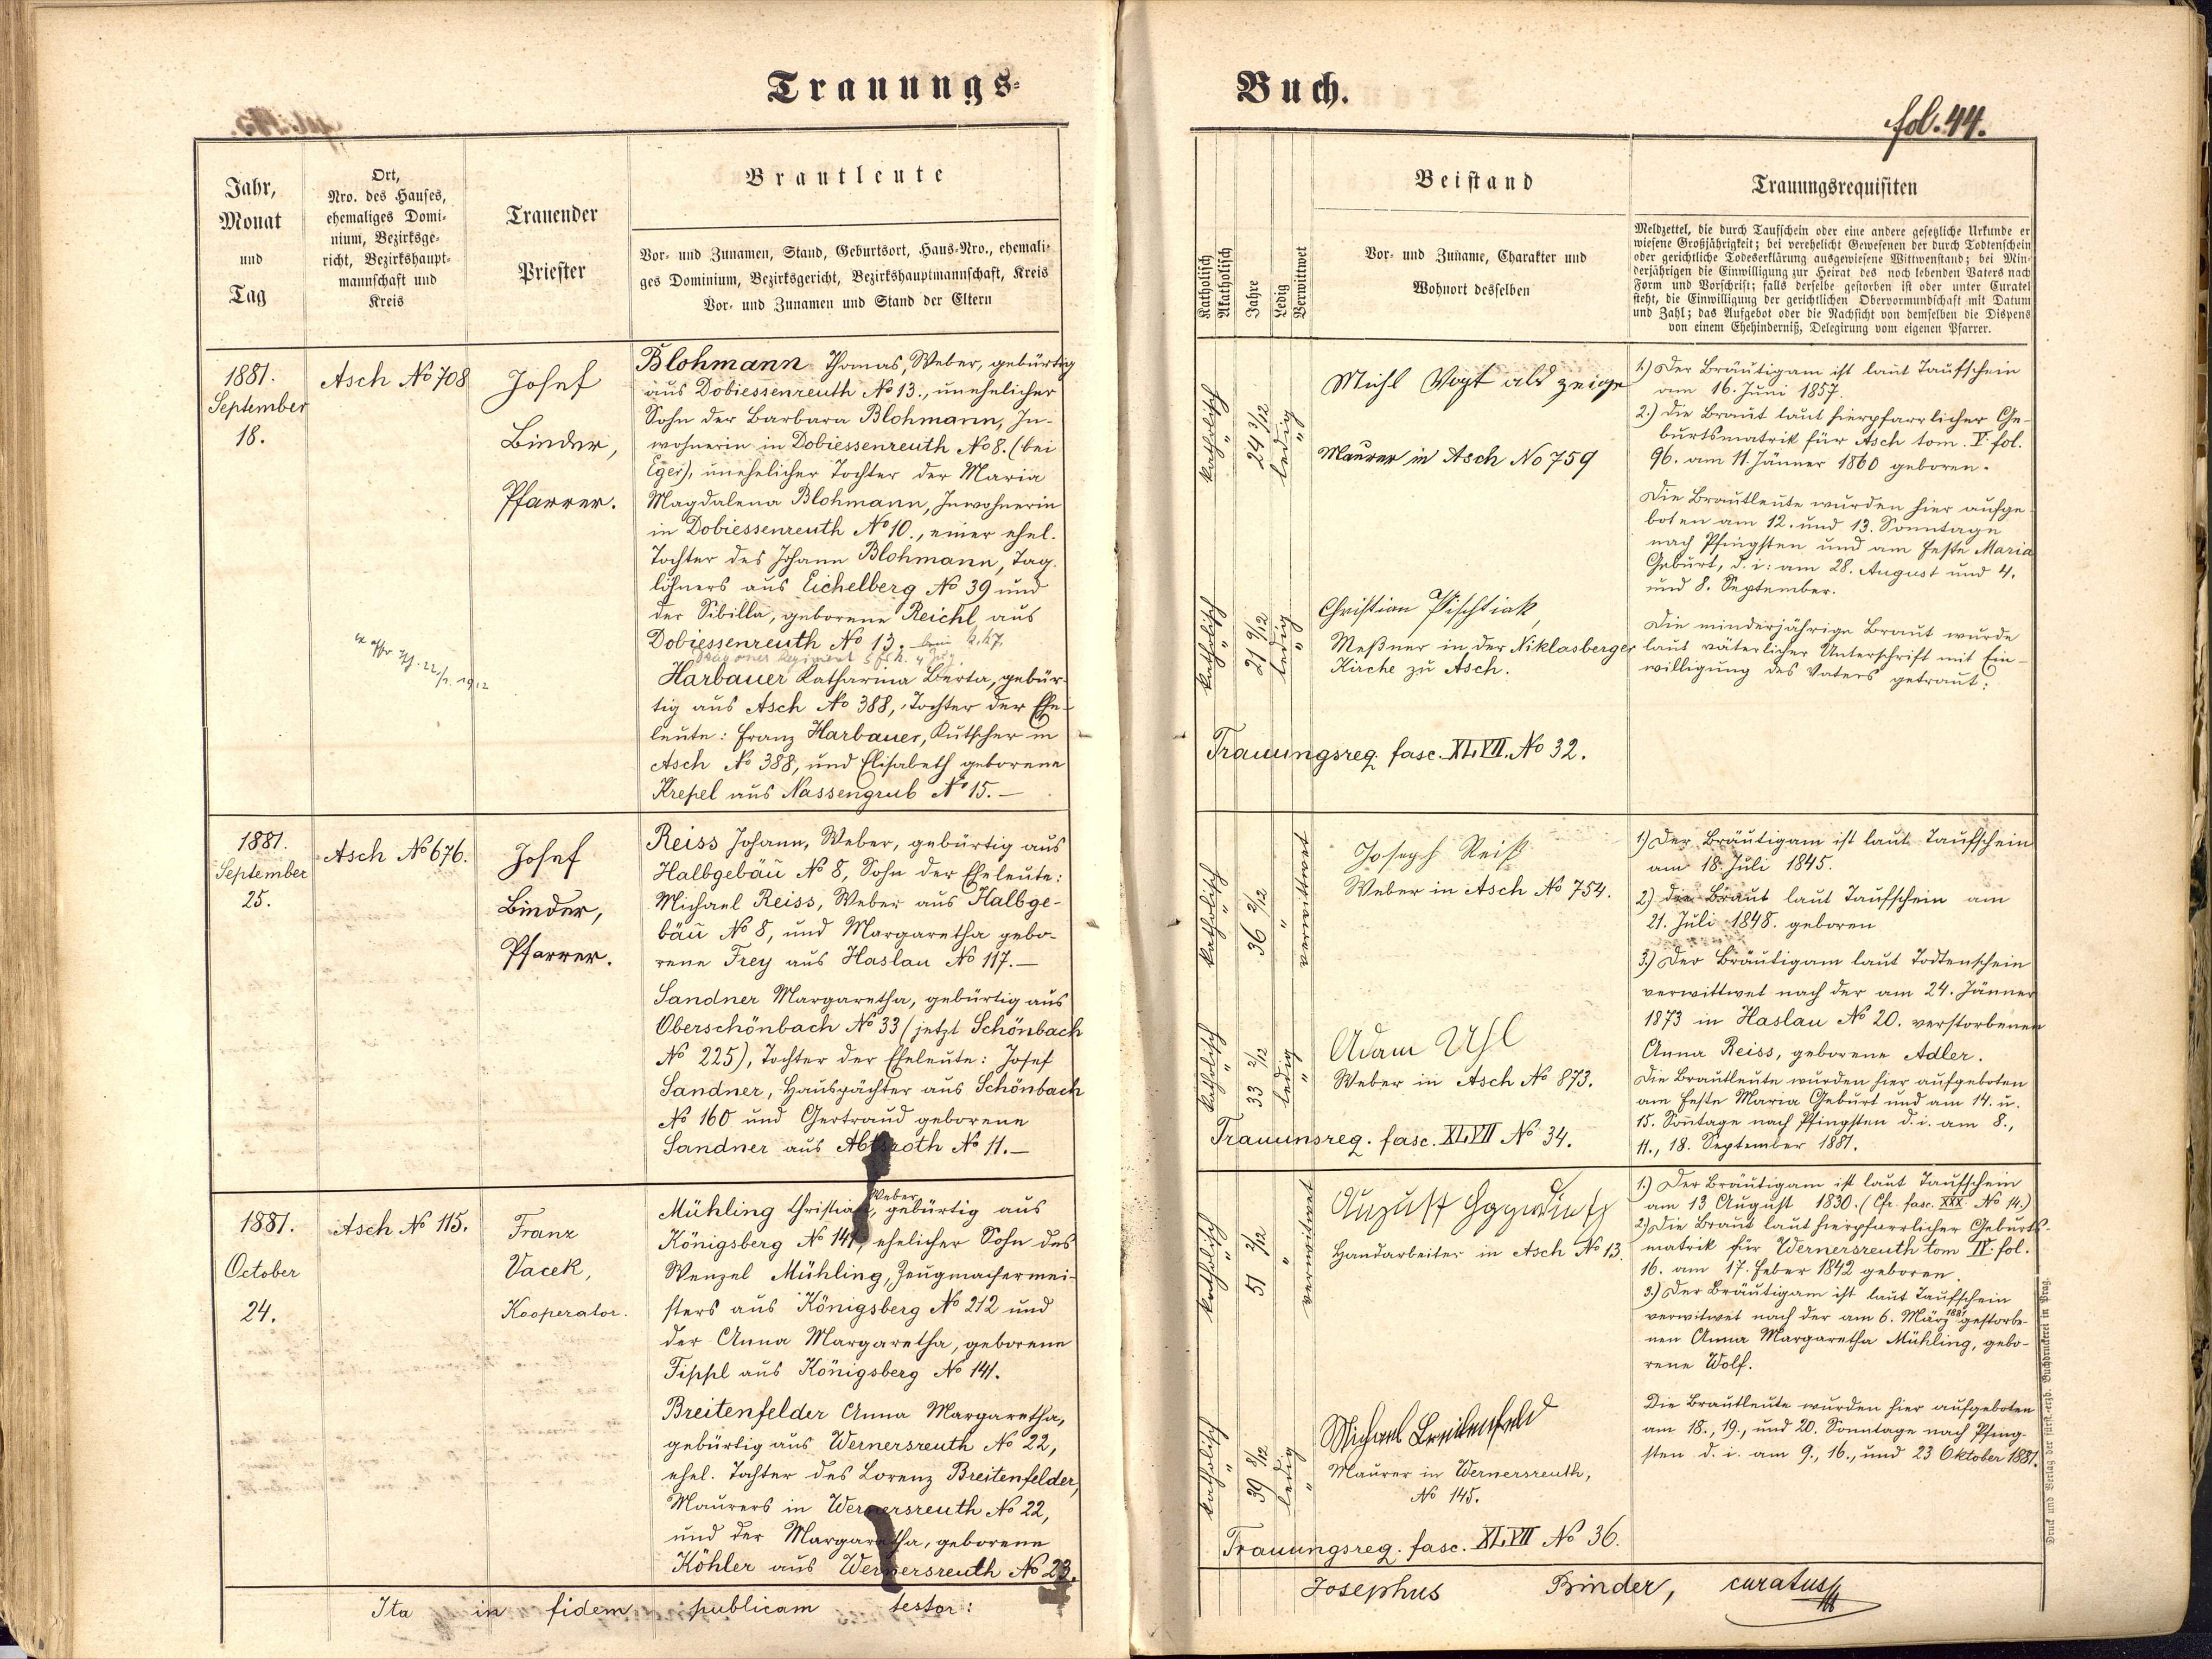 Trauungs-
Buch.
fol. 44.
Jahr,
Monat
und
Tag
Ort,
Nro. des Hauses,
ehemaliges Domi-
nium, Bezirksge-
richt, Bezirkshaupt-
mannschaft und
Kreis
Trauender
Priester
Brautleute
Vor- und Zunamen, Stand, Geburtsort, Haus-Nro., ehemali-
ges Dominium, Bezirksgericht, Bezirkshauptmannschaft, Kreis
Vor- und Zunamen und Stand der Eltern
Katholisch
Akatholisch
Jahre
Ledig
Verwittwet
Beistand
Vor- und Zuname, Charakter und
Wohnort desselben
Trauungsrequisiten
Meldzettel, die durch Taufschein oder eine andere gesetzliche Urkunde er
wiesene Großjährigkeit; bei verehelicht Gewesenen der durch Todtenschein
oder gerichtliche Todeserklärung ausgewiesene Wittwenstand; bei Min-
derjährigen die Einwilligung zur Heirat des noch lebenden Vaters nach
Form und Vorschrift; falls derselbe gestorben ist oder unter Curatel
steht, die Einwilligung der gerichtlichen Obervormundschaft mit Datum
und Zahl; das Aufgebot oder die Nachsicht von demselben die Dispens
von einem Ehehinderniß, Delegirung vom eigenen Pfarrer.
1881.
September
18.
Asch No 708
Josef
Binder,
Pfarrer.
Blohmann Thomas, Weber, gebürtig
aus Dobiessenreuth No 13., unehelicher
Sohn der Barbara Blohmann, In-
wohnerin in Dobiessenreuth No 8. (bei
Eger), unehelicher Tochter der Maria
Magdalena Blohmann, Inwohnerin
in Dobiessenreuth No 10., einer ehel.
Tochter des Johann Blohmann, Tag-
löhners aus Eichelberg No 39 und
der Sibilla, geborene Reichl aus
Dobiessenreuth No 13.
Harbauer Katharina Berta, gebür-
tig aus Asch No 388, Tochter der Ehe-
leute: Franz Harbauer, Kutscher in
Asch No 388, und Elisabeth geborene
Krepel aus Nassengrub No 15.—
katholisch
"
24 3/12
ledig
"
Michl Vogt als zeige
Maurer in Asch No 759
katholisch
"
21 9/12
ledig
"
Christian Pischtiak,
Meßner in der Niklasberger
Kirche zu Asch.
Trauungsreq. fasc. XLVII. No 32.
1.) Der Bräutigam ist laut Taufschein
am 16. Juni 1857.
2.) die Braut laut hierpfarrlicher Ge-
burtsmatrik für Asch tom. V. fol.
96. am 11. Jänner 1860 geboren.
Die Brautleute wurden hier aufge-
boten am 12. und 13. Sonntage
nach Pfingsten und am Feste Maria
Geburt, d. i: am 28. August und 4.
und 8. September.
Die minderjährige Braut wurde
laut väterlicher Unterschrift mit Ein-
willigung des Vaters getraut:
1881.
September
25.
Asch No 676.
Josef
Binder,
Pfarrer.
Reiss Johann, Weber, gebürtig aus
Halbgebäu No 8, Sohn der Eheleute:
Michael Reiss, Weber aus Halbge-
bäu No 8, und Margaretha gebo-
rene Frey aus Haslau No 117.—
Sandner Margaretha, gebürtig aus
Oberschönbach No 33 (jetzt Schönbach
No 225), Tochter der Eheleute: Josef
Sandner, Hauspächter aus Schönbach
No 160 und Gertraud geborene
Sandner aus Abtsroth No 11.—
katholisch
"
36 2/12
"
verwittwet
Joseph Reiß
Weber in Asch No 754.
katholisch
"
33 2/12
ledig
"
Adam Uhl
Weber in Asch No 873.
Trauunsreq. fasc. XLVII No 34.
1) Der Bräutigam ist laut Taufschein
am 18. Juli 1845.
2) die Braut laut Taufschein am
21. Juli 1848. geboren
3.) Der Bräutigam laut Todtenschein
verwittwet nach der am 24. Jänner
1873 in Haslau No 20. verstorbenen
Anna Reiss, geborene Adler.
Die Brautleute wurden hier aufgeboten
am Feste Maria Geburt und am 14. u.
15. Sontage nach Pfingsten d. i. am 8.,
11., 18. September 1881.
1881.
October
24.
Asch No 115.
Franz
Vacek,
Kooperator.
Weber
Mühling Christian, gebürtig aus
Königsberg No 141, ehelicher Sohn des
Wenzel Mühling, Zeugmachermei-
sters aus Königsberg No 212 und
der Anna Margaretha, geborene
Tippl aus Königsberg No 141.
Breitenfelder Anna Margaretha,
gebürtig aus Wernersreuth No 22,
ehel. Tochter des Lorenz Breitenfelder,
Maurers in Wernersreuth No 22,
und der Margaretha, geborene
Köhler aus Wernersreuth No 23.
katholisch
"
51 2/12
"
verwitwet
August
Handarbeiter in Asch No 13.
katholisch
"
39 8/12
ledig
"
Michael Breitenfeld
Maurer in Wernersreuth,
No 145.
Trauungsreq. fasc. XLVII No 36.
1.) Der Bräutigam ist laut Taufschein
am 13 August 1830. (Cfr. fasc. XXX No 14.)
2) Die Braut laut hierpfarrlicher Geburts-
matrik für Wernersreuth tom IV. fol.
16. am 17. Feber 1842 geboren.
3.) Der Bräutigam ist laut Taufschein
verwitwet nach der am 6. März 1881 gestorbe-
nen Anna Margaretha Mühling, gebo-
rene Wolf.
Die Brautleute wurden hier aufgeboten
am 18., 19., und 20. Sonntage nach Pfing-
sten d. i. am 9., 16., und 23 Oktober 1881.
Ita in fidem publicam testor:
Josephus Binder, curatus
Druck und Verlag der fürst.-erzb. Buchdruckerei in Prag.